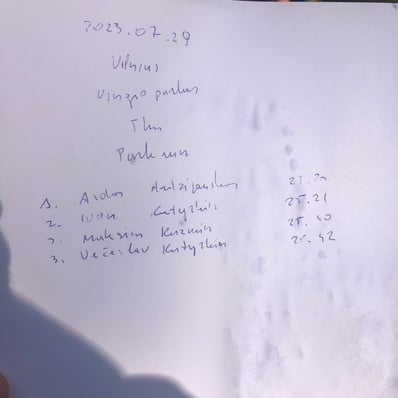 2023.07.29
Vilnius
Vingio parkas
5km
Parkrun
1. Aidas Ardzijauskas
2. Ivan Kutyzkin 25.21
3. Maksim Kuzmin 25.40
3. Večeslav Kutyzkin 25.42